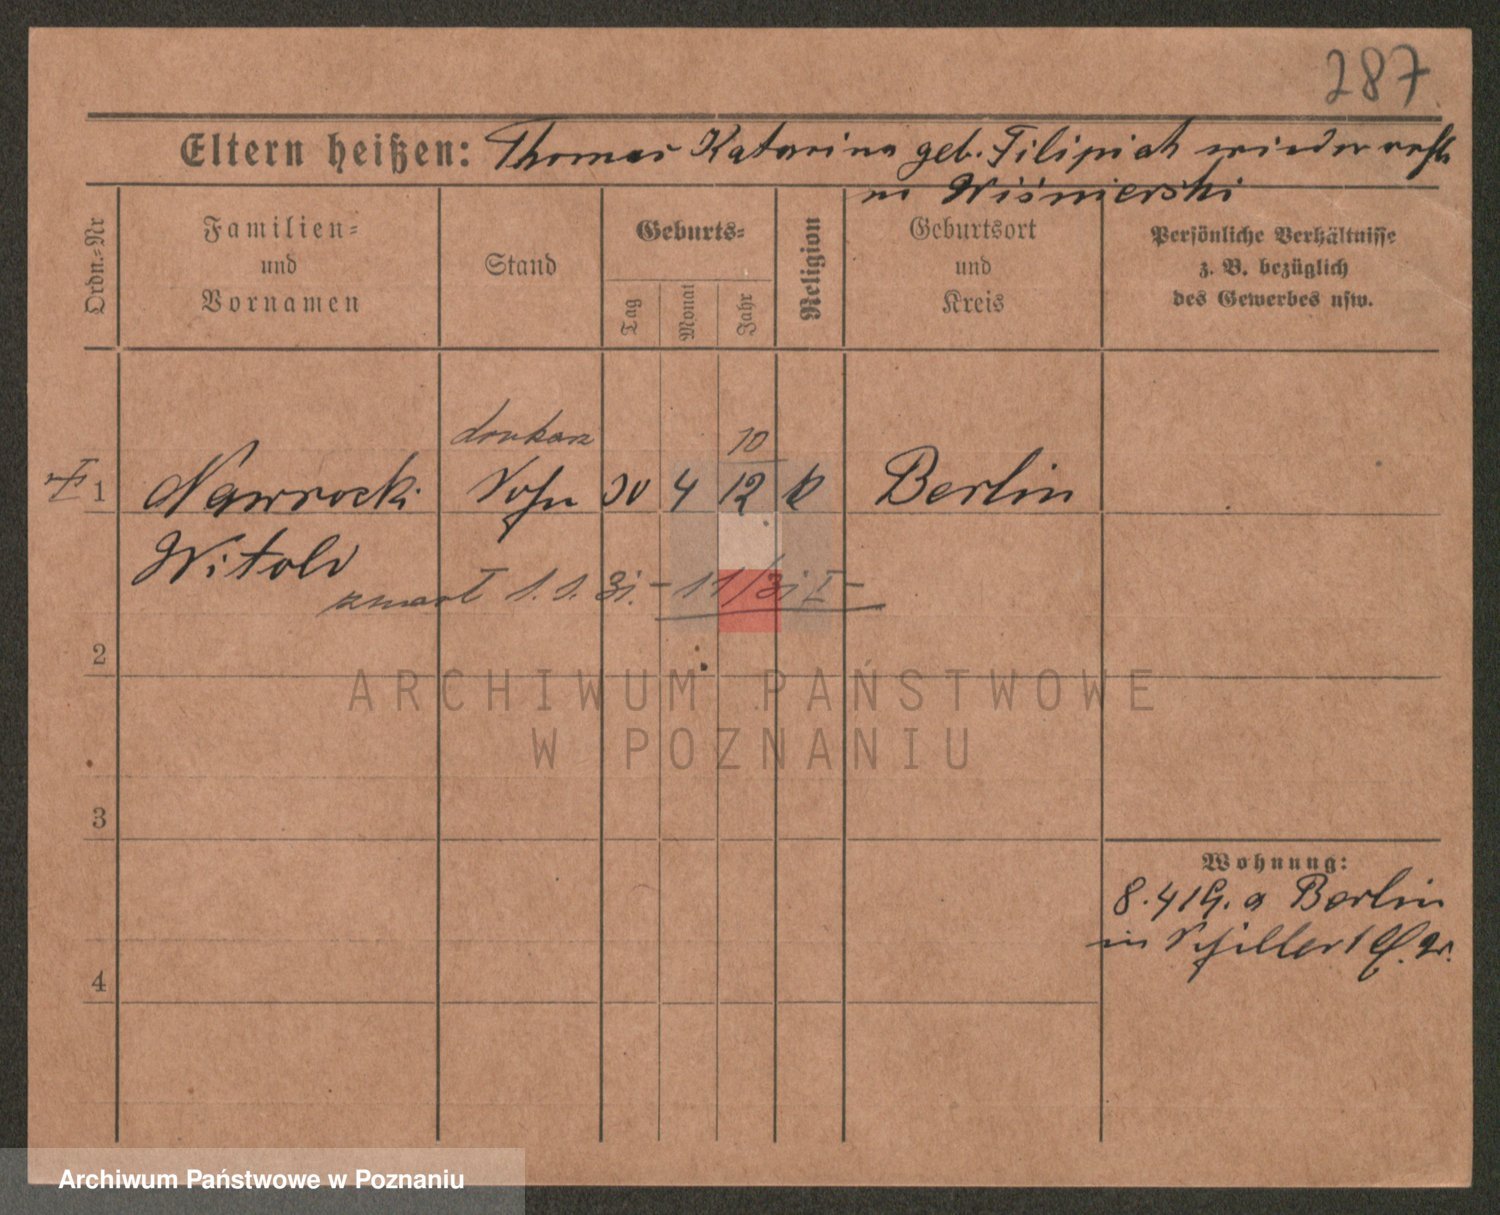 287
Eltern heißen: Thomas Katarina geb. Filipiak wieder verh
m Wiśnierski
Ordn.-Nr
Familien=
und
Vornamen
Stand
Geburts=
Tag
Monat
Jahr
Religion
Geburtsort
und
Kreis
Persönliche Verhältnisse
z. B. bezüglich
des Gewerbes usw.
drukarz
10
1 Nawrocki Sohn 30 4 12 k Berlin
Witold
zmarł 1.1.31.- 11/31 I-
2
ARCHIWUM PAŃSTWOWE
W POZNANIU
3
Wohnung:
8.4 19. a Berlin
in Schiller
4
Archiwum Państwowe w Poznaniu